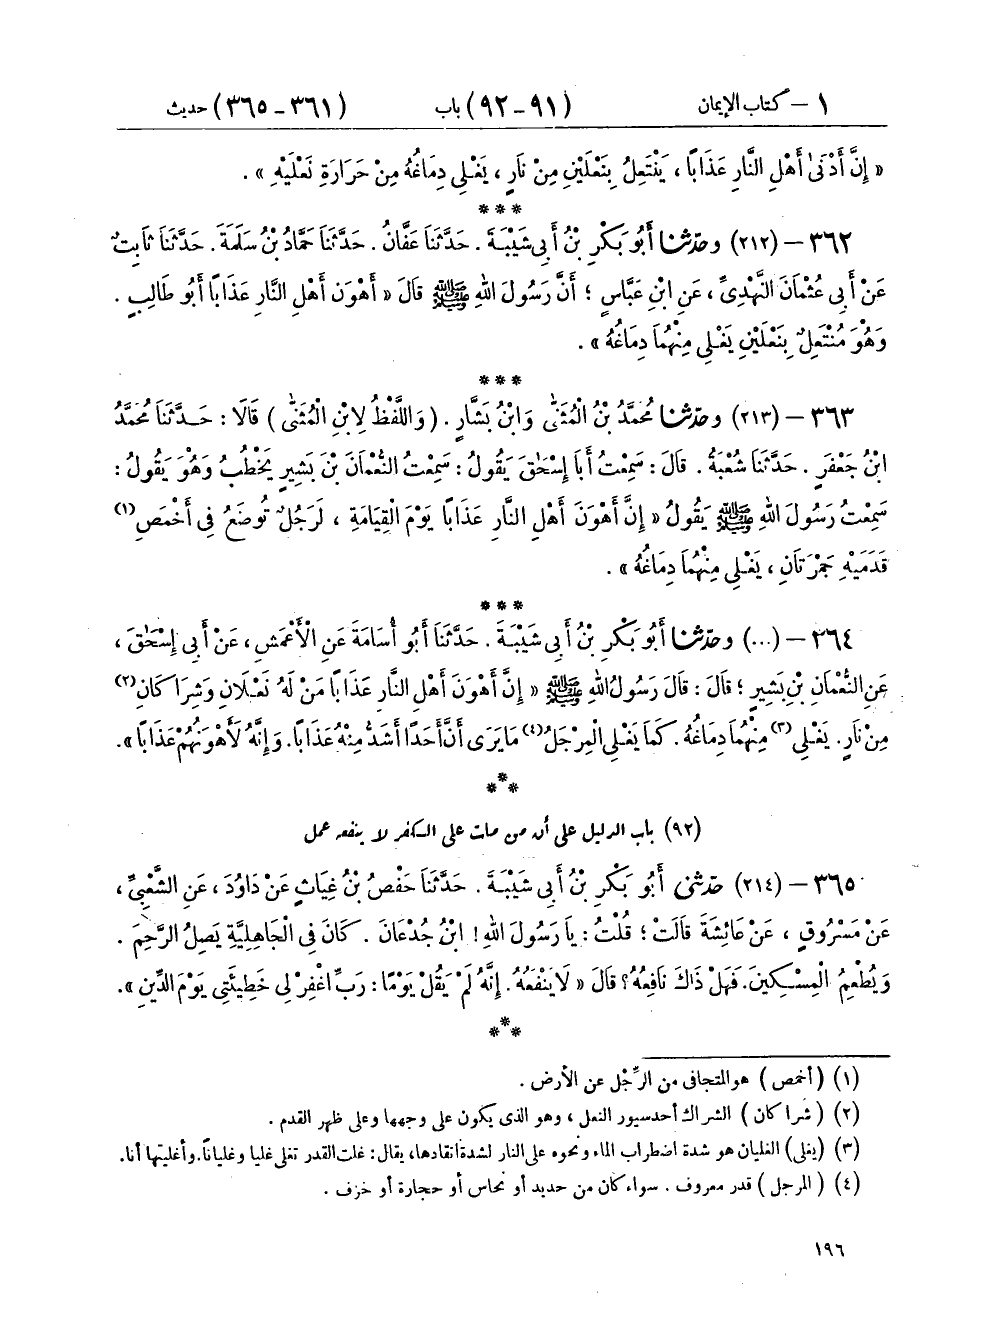 ١ – كتاب الإيمان (٩١ – ٩٢) باب (٣٦١ – ٣٦٥) حديث
« إِنَّ أَدْنَىٰ أَهْلِ النَّارِ عَذَابًا ، يَنْتَعِلُ بِنَعْلَيْنِ مِنْ نَارٍ ، يَغْلِي دِمَاغُهُ مِنْ حَرَارَةِ نَعْلَيْهِ » .
***
٣٦٢ – (٢١٢) وحَدّثنا أَبُو بَكْرِ بْنُ أَبِي شَيْبَةَ . حَدَّثَنَا عَفَّانُ . حَدَّثَنَا حَمَّادُ بْنُ سَلَمَةَ . حَدَّثَنَا ثَابِتٌ
عَنْ أَبِي عُثْمَانَ النَّهْدِيِّ ، عَنِ ابْنِ عَبَّاسٍ ؛ أَنَّ رَسُولَ اللهِ ﷺ قَالَ « أَهْوَن أَهْلِ النَّارِ عَذَابًا أَبُو طَالِبٍ .
وَهُوَ مُنْتَعِلٌ بِنَعْلَيْنِ يَغْلِي مِنْهُمَا دِمَاغُهُ » .
***
٣٦٣ – (٢١٣) وحَدّثنا مُحَمَّدُ بْنُ الْمُثَنَّى وَابْنُ بَشَّارٍ . ( وَاللَّفْظُ لِابْنِ الْمُثَنَّى ) قَالَا : حَدَّثَنَا مُحَمَّدُ
ابْنُ جَعْفَرٍ . حَدَّثَنَا شُعْبَةُ . قَالَ : سَمِعْتُ أَبَا إِسْحَٰقَ يَقُولُ : سَمِعْتُ النُّعْمَانَ بْنَ بَشِيرٍ يَخْطُبُ وَهُوَ يَقُولُ :
سَمِعْتُ رَسُولَ اللهِ ﷺ يَقُولُ « إِنَّ أَهْوَنَ أَهْلِ النَّارِ عَذَابًا يَوْمَ الْقِيَامَةِ ، لَرَجُلٌ تُوضَعُ فِي أَخْمَصِ(١)
قَدَمَيْهِ جَمْرَتَانِ ، يَغْلِي مِنْهُمَا دِمَاغُهُ » .
***
٢٦٤ – (...) وحَدّثنا أَبُو بَكْرِ بْنُ أَبِي شَيْبَةَ . حَدَّثَنَا أَبُو أُسَامَةَ عَنِ الْأَعْمَشِ ، عَنْ أَبِي إِسْحَٰقَ ،
عَنِ النُّعْمَانِ بْنِ بَشِيرٍ ؛ قَالَ : قَالَ رَسُولُ اللهِ ﷺ « إِنَّ أَهْوَنَ أَهْلِ النَّارِ عَذَابًا مَنْ لَهُ نَعْلَانِ وَشِرَاكَانِ(٢)
مِنْ نَارٍ . يَغْلِي(٣) مِنْهُمَا دِمَاغُهُ . كَمَا يَغْلِي الْمِرْجَلُ(٤) مَا يَرَى أَنَّ أَحَدًا أَشَدُّ مِنْهُ عَذَابًا . وَإِنَّهُ لَأَهْوَنُهُمْ عَذَابًا » .
***
(٩٢) باب الدليل على أن من مات على الكفر لا ينفعه عمل
٣٦٥ – (٢١٤) حَدّثني أَبُو بَكْرِ بْنُ أَبِي شَيْبَةَ . حَدَّثَنَا حَفْصُ بْنُ غِيَاثٍ عَنْ دَاوُدَ ، عَنِ الشَّعْبِيِّ ،
عَنْ مَسْرُوقٍ ، عَنْ عَائِشَةَ قَالَتْ ؛ قُلْتُ : يَا رَسُولَ اللهِ ! ابْنُ جُدْعَانَ . كَانَ فِي الْجَاهِلِيَّةِ يَصِلُ الرَّحِمَ .
وَيُطْعِمُ الْمِسْكِينَ . فَهَلْ ذَاكَ نَافِعُهُ ؟ قَالَ « لَا يَنْفَعُهُ . إِنَّهُ لَمْ يَقُلْ يَوْمًا : رَبِّ اغْفِرْ لِي خَطِيئَتِي يَوْمَ الدِّينِ » .
***
(١) ( أخمص ) هو المتجافى من الرِّجْل عن الأرض .
(٢) ( شراكان ) الشراك أحد سيور النعل ، وهو الذى يكون على وجهها وعلى ظهر القدم .
(٣) (يغلى) الغليان هو شدة اضطراب الماء ونحوه على النار لشدة اتقادها، يقال : غلت القدر تغلى غليا وغلياناً. وأغليتها أنا.
(٤) ( المرجل ) قدر معروف . سواء كان من حديد أو نحاس أو حجارة أو خزف .
١٩٦